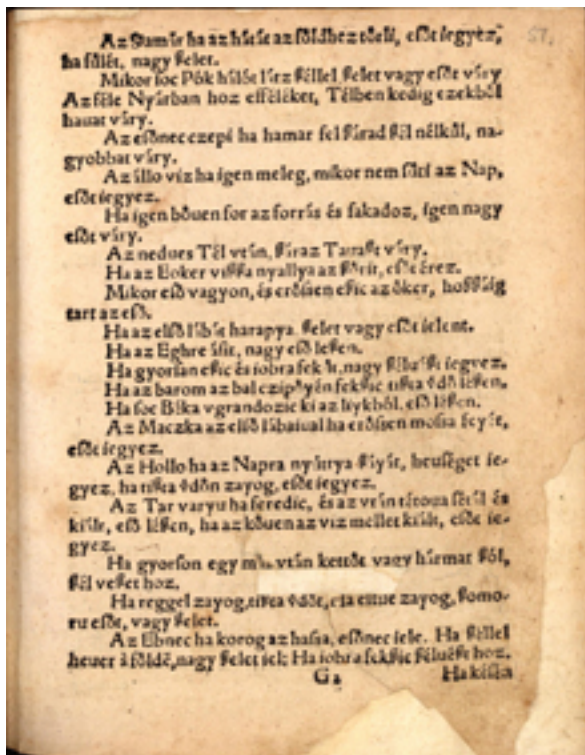 57.
Az Samár ha az hátát az földhez tőeli, esőt iegyez,
ha fűlét, nagy ſzelet.
Mikor ſoc Pók hálót látz ſzéllel, ſzelet vagy eſőt váry
Az féle Nyárban hoz efféléket, Télben kedig ezekből
hauat váry.
Az eſőnec czepi ha hamar fel ſzárad ſzél nélkűl, na-
gyobbat váry.
Az állo viz ha igen meleg, mikor nem ſűti az Nap,
eſőt iegyez.
Ha igen bőuen for az forrás és fakadoz, igen nagy
eſőt váry.
Az nedues Tél vtán, ſzáraz Tauaſzt váry.
Ha az Eoker viſſza nyallya az ſzőrit, eſőt érez.
Mikor eſő vagyon, és erőſſen eſzic az őker, hoſſzáig
tart az eſő.
Ha az elſő lábát harapya, ſzelet vagy eſőt ielent.
Ha az Eghre áſit, nagy eſő léſzen.
Ha gyorſan eſzic és iobra fekſzic, nagy ſzéluéſzt iegyez.
Ha az barom az bal czipőyén fekſzic tiſzta ődő léſzen.
Ha ſoc Béka vgrandozic ki az lyikből, eſő léſzen.
Az Maczka az elſő lábaiual ha erőſſen moſsa feyét,
eſőt iegyez.
Az Hollo ha az Napra nyittya ſzáyát, heuſéget ie-
gyez, ha tiſzta ődőn zayog, eſőt iegyez.
Az Tar varyu ha feredic, és az vtán tétoua ſétál és
kiált, eſő léſzen, ha az kőuen az viz mellet kiált, eſőt ie-
gyez.
Ha gyorſon egy más vtán kettőt vagy hármat ſzól,
ſzél veſzet hoz.
Ha reggel zayog, tiſzta ődőt, eſtue zayog, ſzomo-
ru eſőt, vagy ſzelet.
Az Ebnec ha korog az haſsa, eſőnec iele. Ha ſzéllel
heuer á főldő, nagy ſzelet iel: Ha iobra fekſzic ſzéluéſzt hoz.
G2 Ha késűn